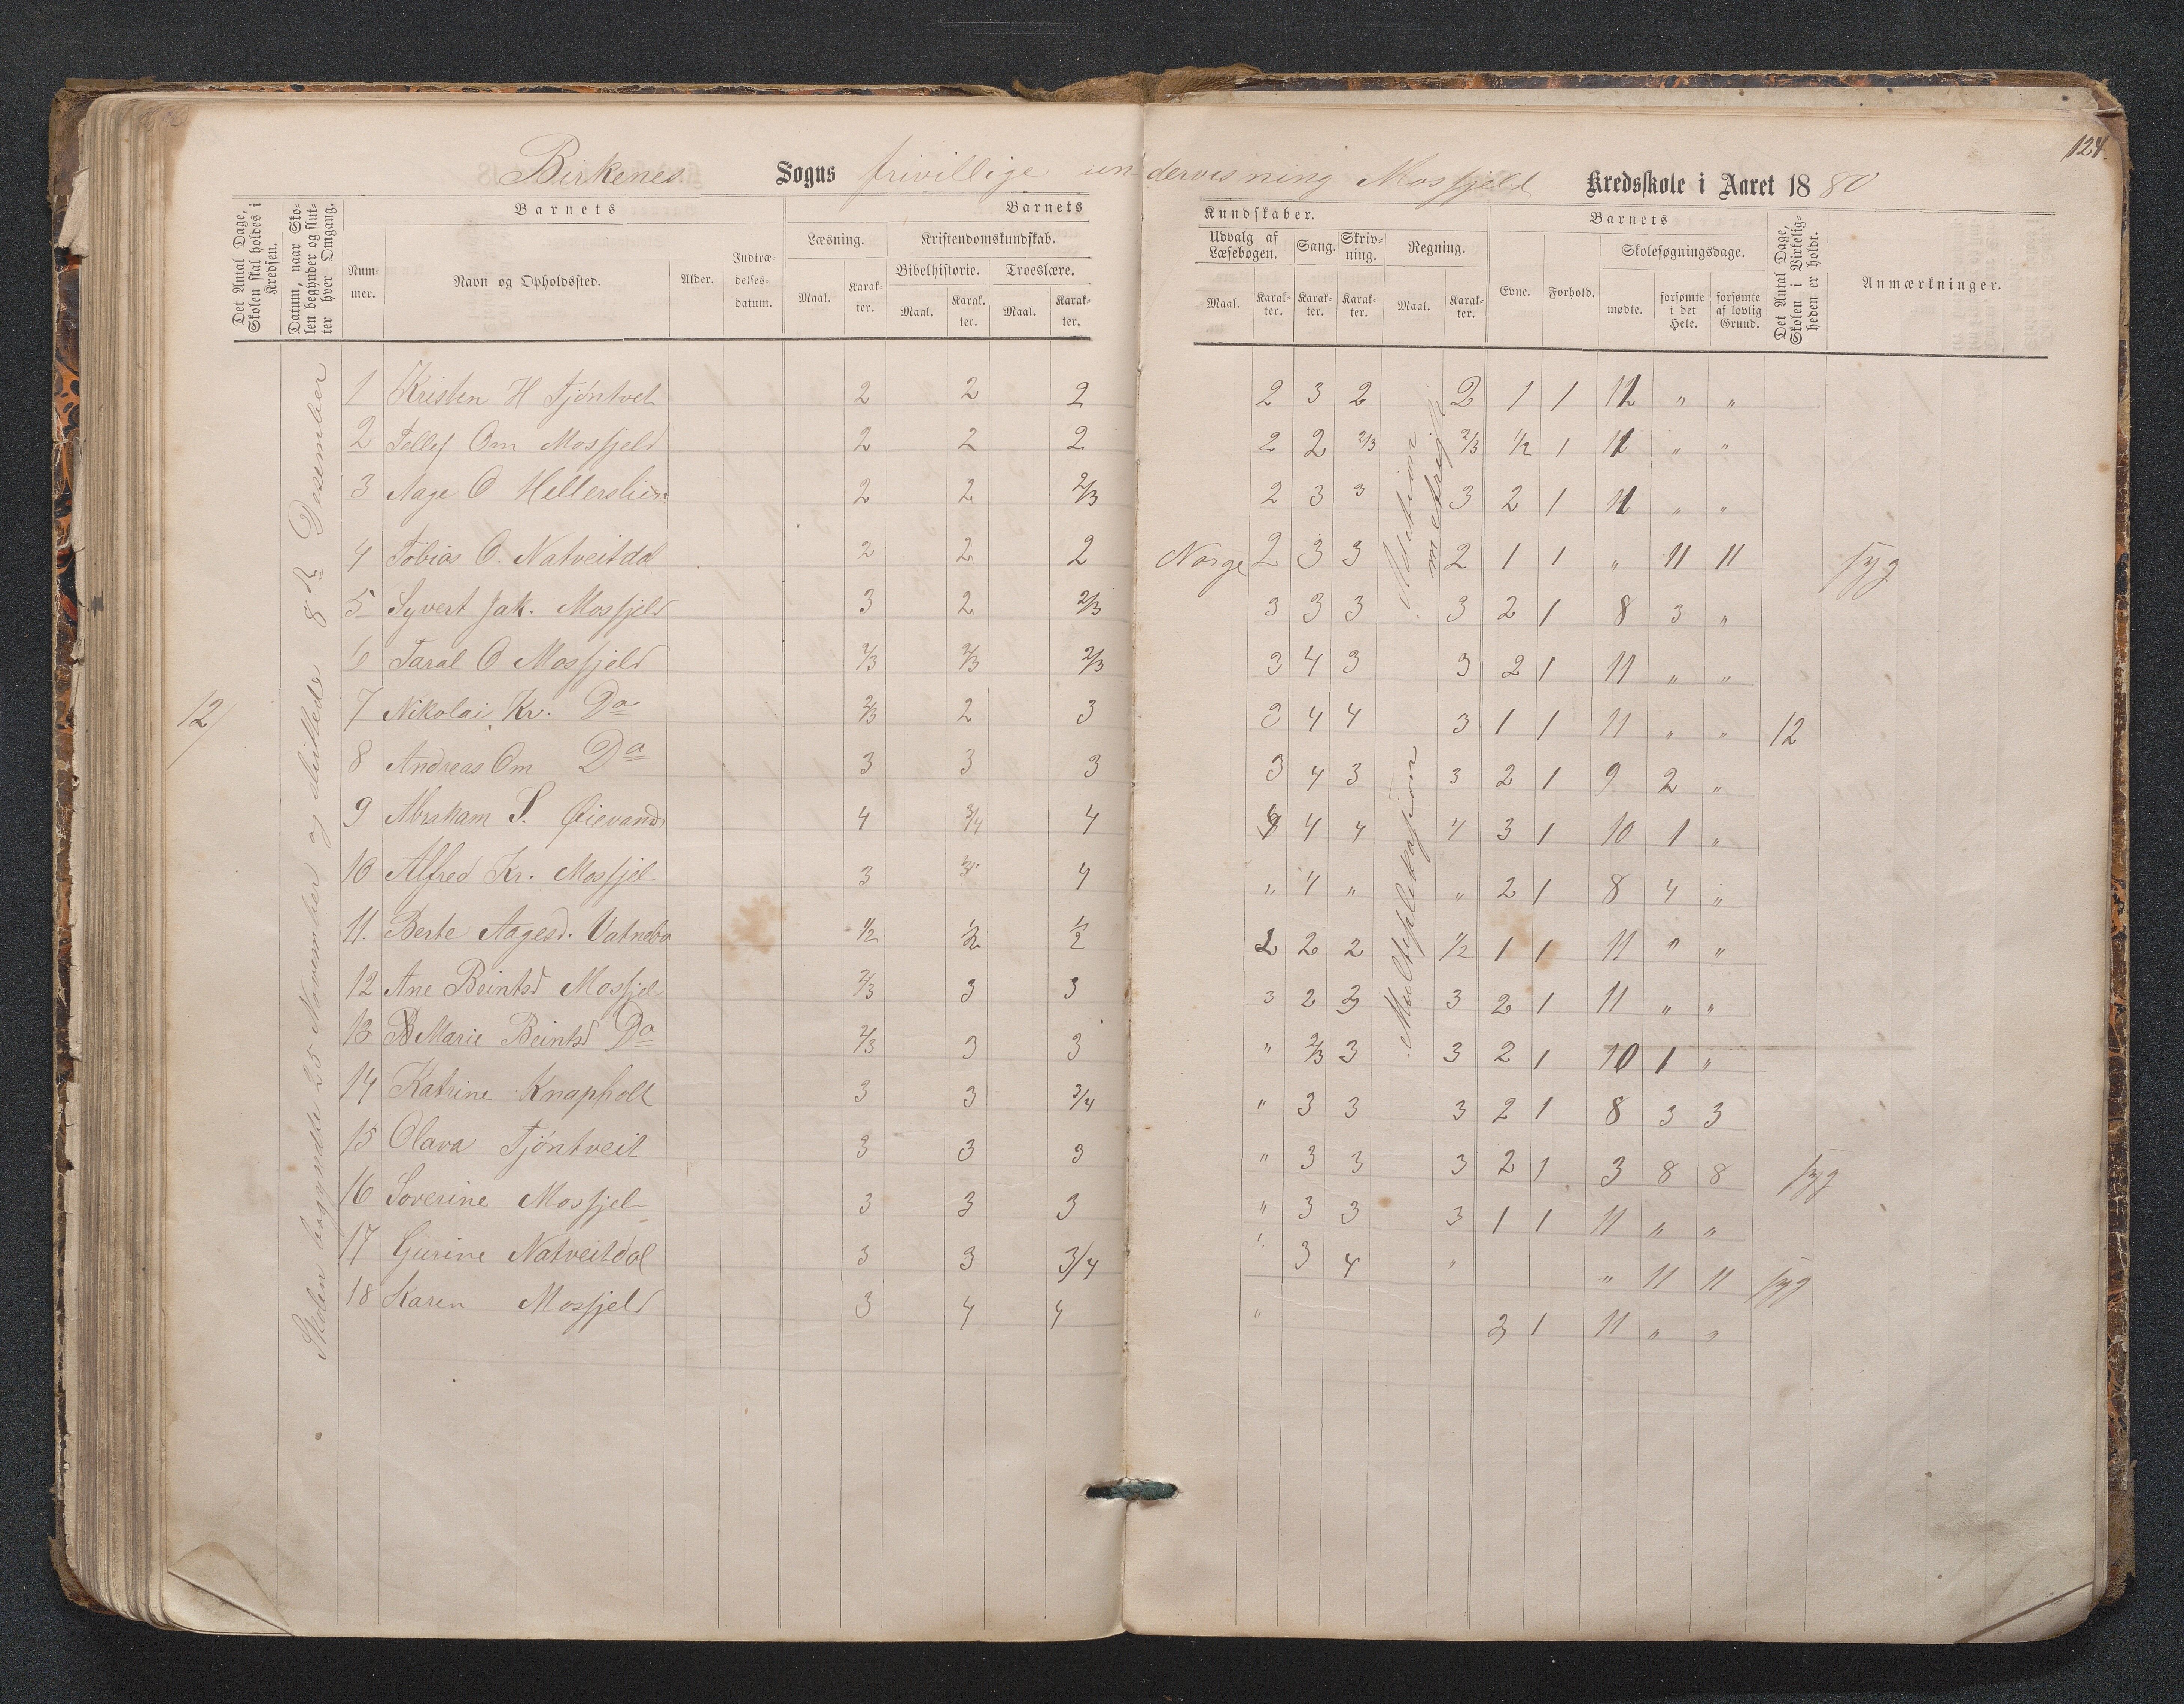 124.
Birkenes Sogns frivillige undervisning Mosfjeld Kredsskole i Aaret 1880
Det Antal Dage, Skolen skal holdes i Kredsen.
Datum, naar Skolen begynder og slutter hver Omgang.
Barnets
Barnets
Kundskaber.
Barnets
Det Antal Dage, Skolen i Virkeligheden er holdt.
Anmærkninger.
Nummer.
Navn og Opholdssted.
Alder.
Indtrædelsesdatum.
Læsning.
Kristendomskundskab.
Udvalg af Læsebogen.
Sang.
Skrivning.
Regning.
Evne.
Forhold.
Skolesøgningsdage.
Bibelhistorie.
Troeslære.
Maal. Karakter. Maal. Karakter. Maal. Karakter. Maal. Karakter. Karakter. Karakter. Maal. Karakter. mødte. forsømte i det Hele. forsømte af lovlig Grund.
12
Skolen begyndte 25 November og sluttede 8de Desember
1 Kristen H Tjöntvet 2 2 2 2 3 2 2 1 1 11 " "
2 Tellef Om Mosfjeld 2 2 2 2 2 2/3 2/3 1/2 1 11 " "
3 Aage O Hellerslien 2 2 2/3 2 3 3 3 2 1 11 " "
4 Tobias O. Natveitdal 2 2 2 Norge 2 3 3 2 1 1 " 11 11 syg
5 Syvert Jak. Mosfjeld 3 2 2/3 3 3 3 3 2 1 8 3 "
6 Taral O Mosfjeld 2/3 2/3 2/3 3 4 3 3 2 1 11 " "
7 Nikolai Kr. Do 2/3 2 3 3 4 4 3 1 1 11 " " 12
8 Andreas Om Do 3 3 3 3 4 3 3 2 1 9 2 "
9 Abraham S. Øievand 4 3/4 4 4 4 4 4 3 1 10 1 "
10 Alfred Kr. Mosfjel 3 3 4 " 4 " " 2 1 8 4 "
11. Berte Aagesd. Vatnebo 1/2 1/2 1/2 2 2 2 1/2 1 1 11 " "
12 Ane Beintsd Mosfjel 2/3 3 3 3 2 3 3 2 1 11 " "
13 Marie Beintsd Do 2/3 3 3 " 2/3 3 3 2 1 10 1 "
14 Katrine Knapholt 3 3 3/4 " 3 3 3 2 1 8 3 3
15 Olava Tjöntveit 3 3 3 " 3 3 3 2 1 3 8 8 syg
16 Soverine Mosfjel 3 3 3 " 3 3 3 1 1 11 " "
17 Gurine Natveitdal 3 3 3/4 " 3 4 " " 11 11 syg
18 Karen Mosfjeld 3 4 4 " 3 1 11 " "
Multeplekasjon